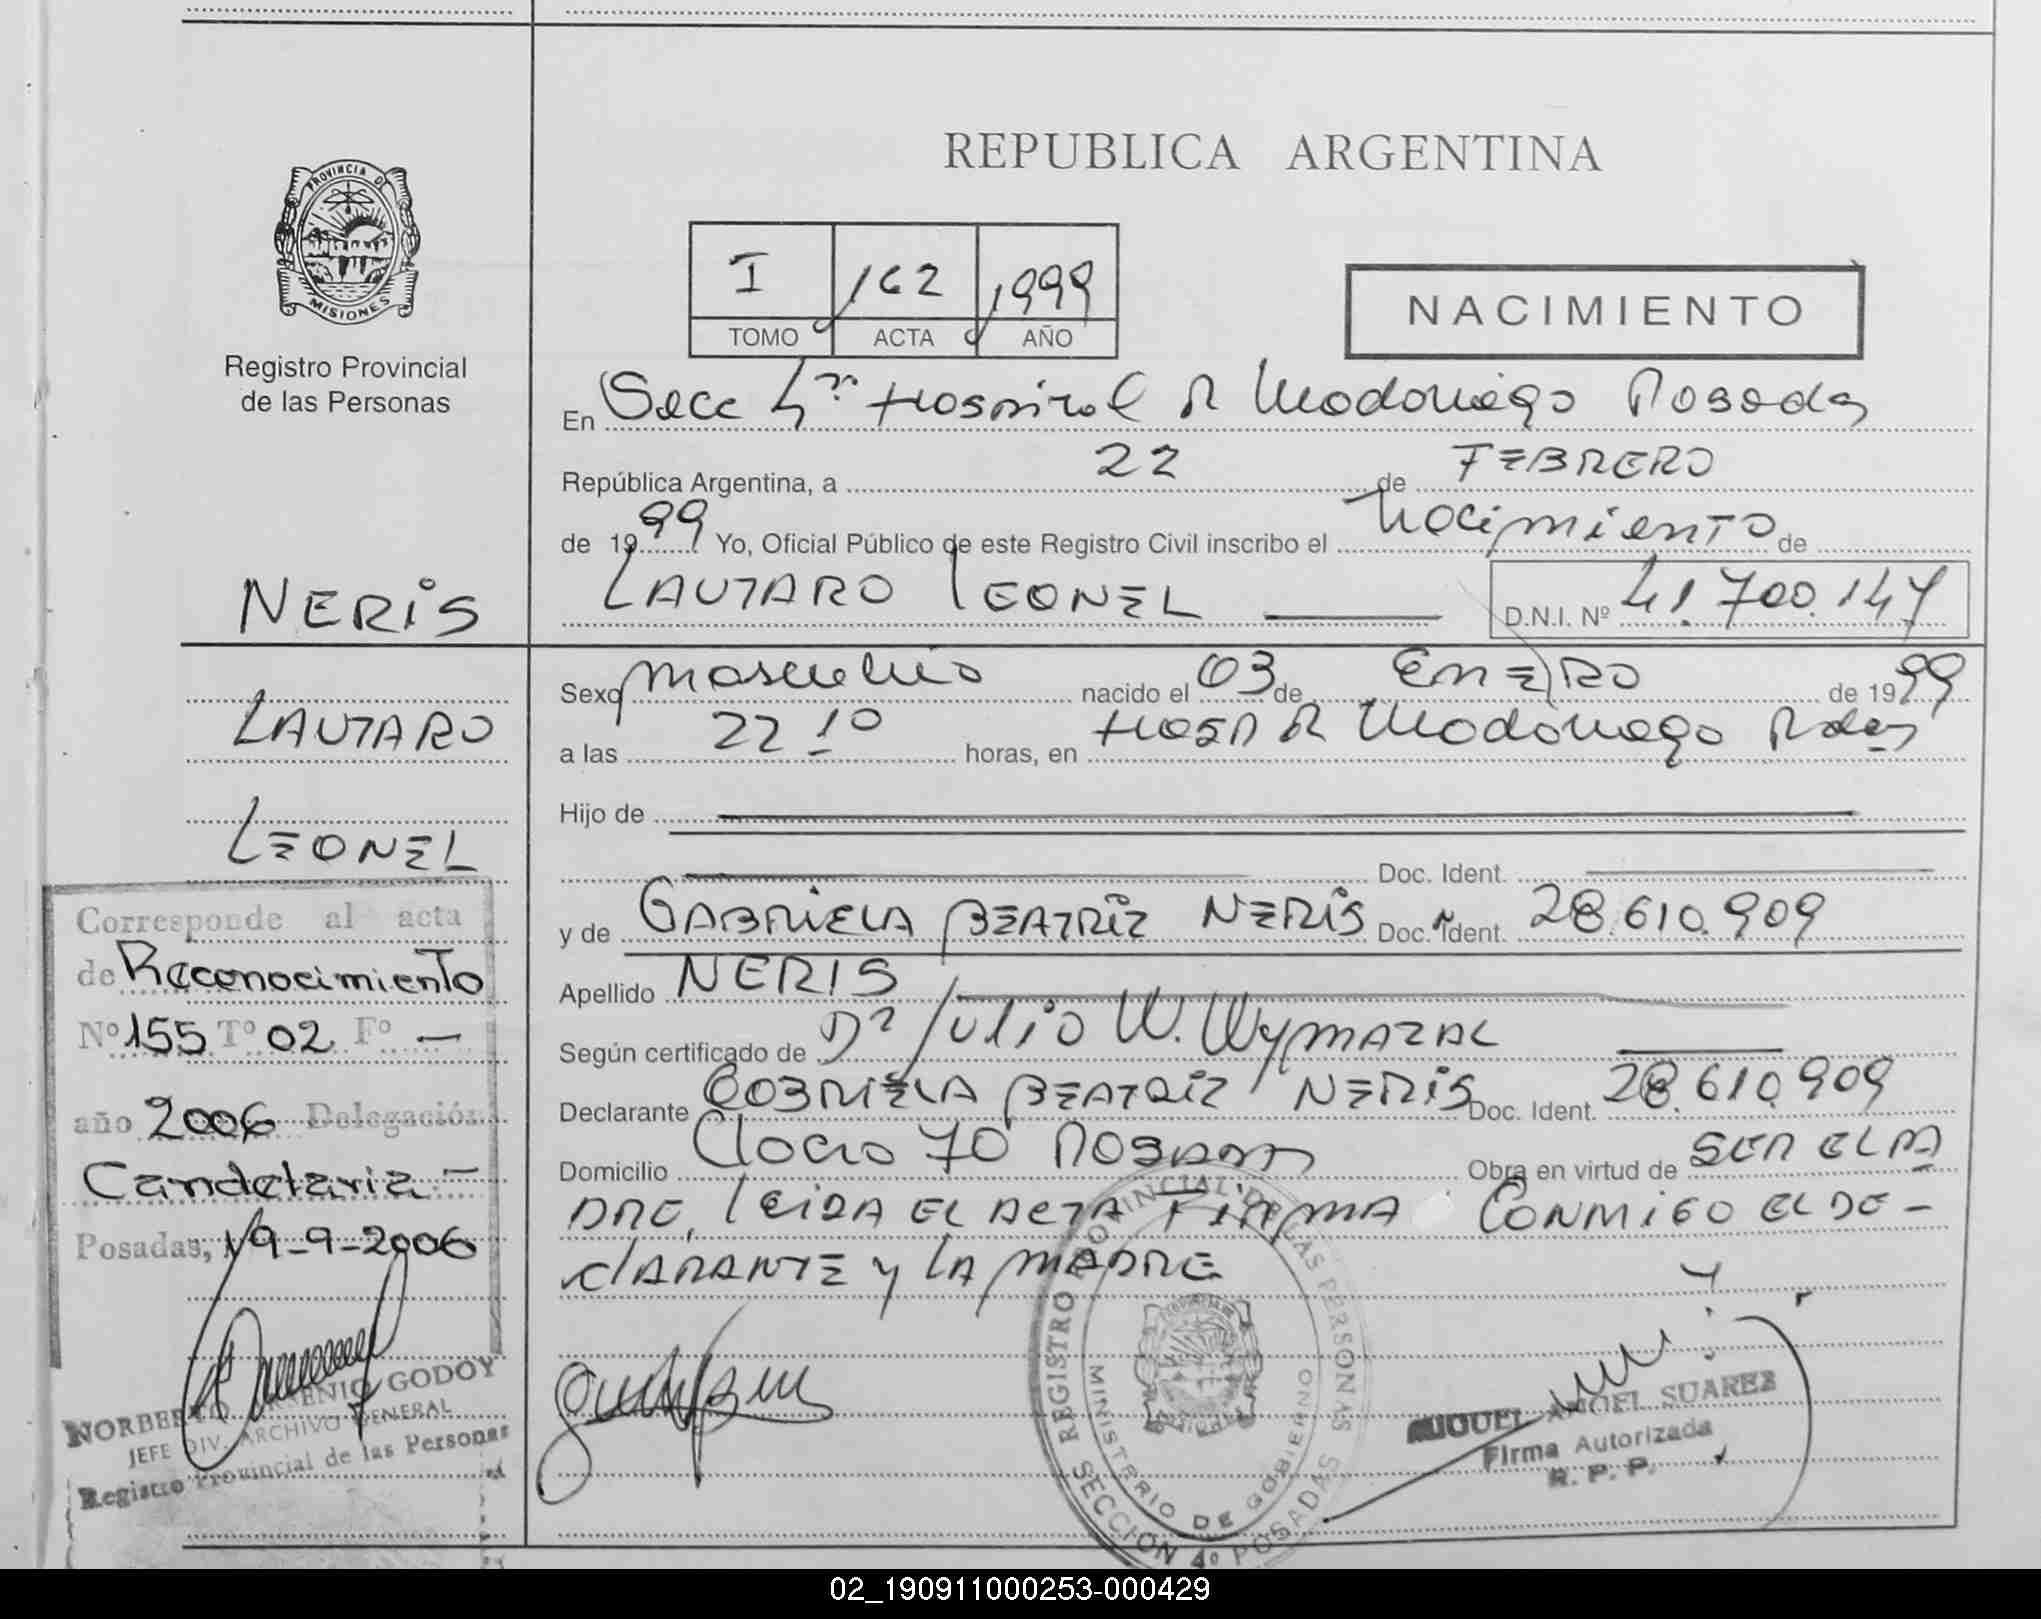 PROVINCIA DE
MISIONES
Registro Provincial
de las Personas
REPUBLICA ARGENTINA
I 162 1999
TOMO ACTA AÑO
NACIMIENTO
En Secc 4ª Hospital R Madariaga Posadas
República Argentina, a 22 de FEBRERO
de 1999 Yo, Oficial Público de este Registro Civil inscribo el Nacimiento de
LAUTARO LEONEL D.N.I. Nº 41.700.147
NERIS
LAUTARO
LEONEL
Sexo masculino nacido el 03 de ENERO de 1999
a las 22 10 horas, en Hosp R Madariaga Pdas
Hijo de
Doc. Ident.
y de GABRIELA BEATRIZ NERIS Doc. Ident. 28.610.909
Apellido NERIS
Según certificado de Dr Julio W. Wymazal
Declarante GABRIELA BEATRIZ NERIS Doc. Ident. 28.610.909
Domicilio 70 POSADAS Obra en virtud de SER EL PA
DRE, LEIDA EL ACTA FIRMA CONMIGO EL DE-
CLARANTE Y LA MADRE
Corresponde al acta
de Reconocimiento
Nº 155 Tº 02 Fº —
año 2006 Delegación
Candelaria -
Posadas, 19-9-2006
NORBERTO ARSENIO GODOY
JEFE DIV. ARCHIVO GENERAL
Registro Provincial de las Personas
REGISTRO PROVINCIAL DE LAS PERSONAS
MINISTERIO DE GOBIERNO
SECCION 4º POSADAS
MIGUEL ANGEL SUAREZ
Firma Autorizada
R. P. P.
02_190911000253-000429